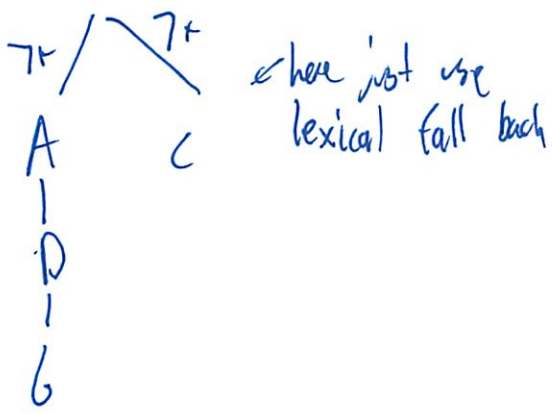 7+ 7+
← here just use
lexical fall back
A C
D
6